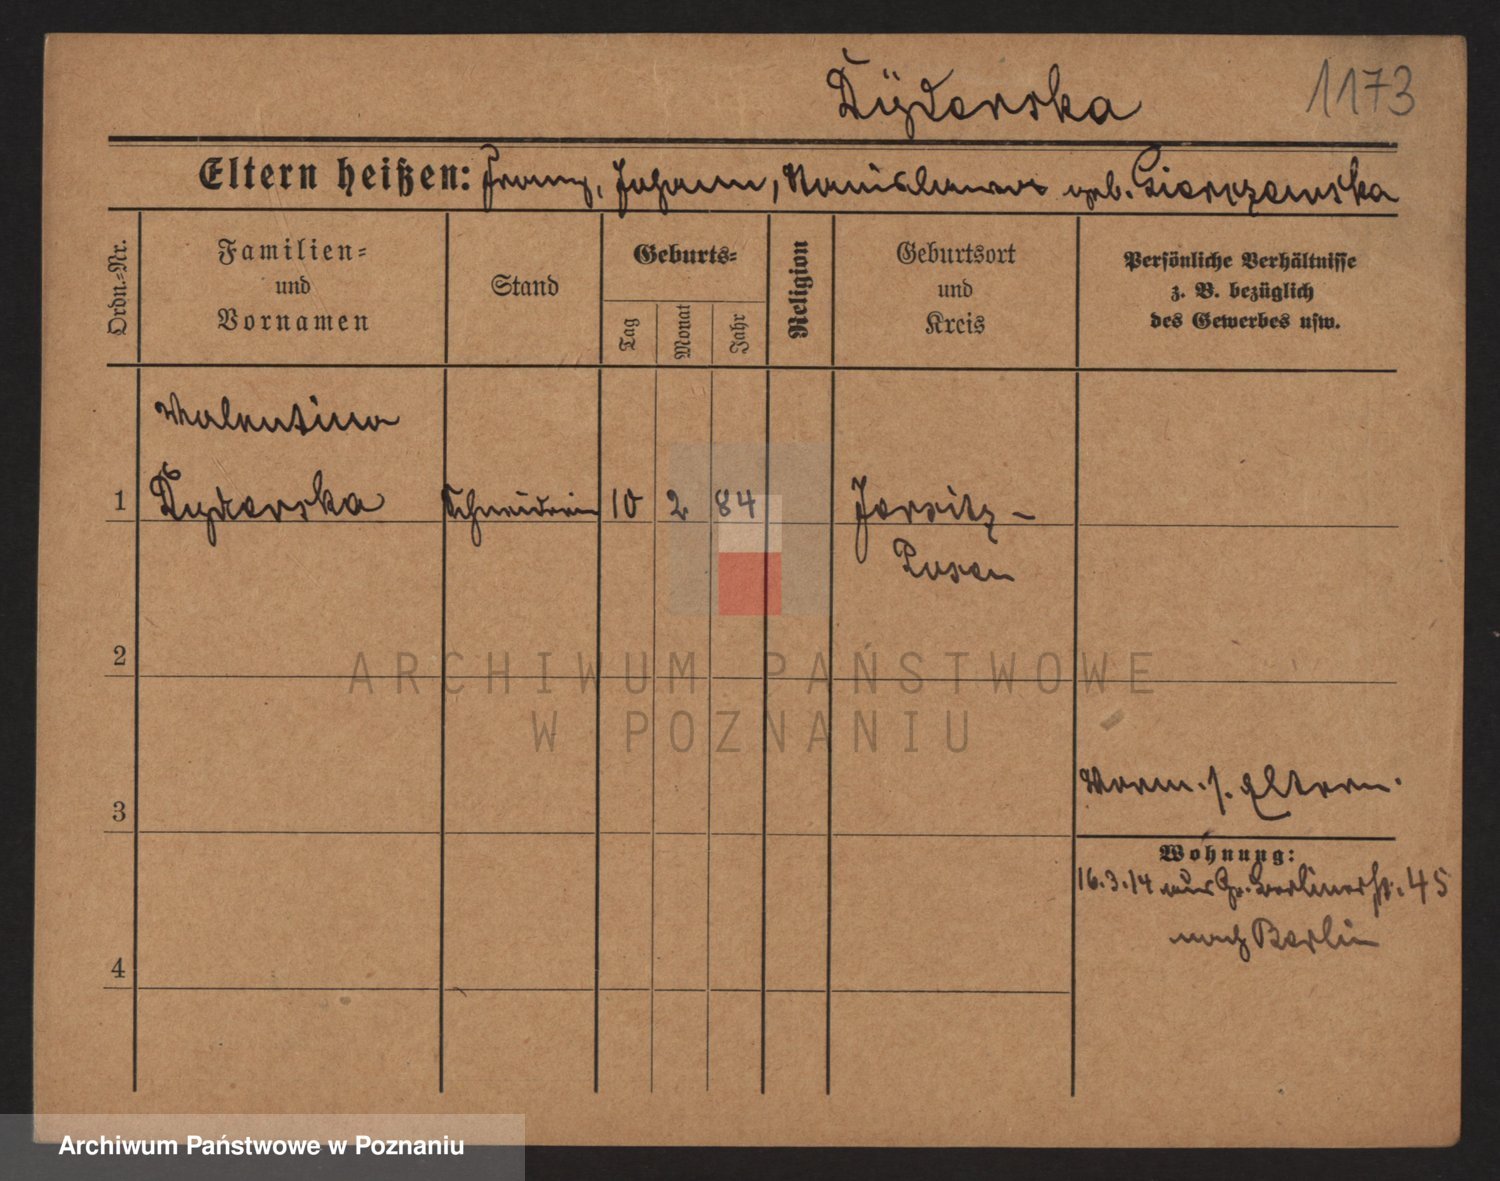 Dÿderska 1173
Eltern heißen: Franz, Johann, Stanislawa geb. Gierczewska
Ordn.=Nr.
Familien=
und
Vornamen
Stand
Geburts=
Tag
Monat
Jahr
Religion
Geburtsort
und
Kreis
Persönliche Verhältnisse
z. B. bezüglich
des Gewerbes usw.
Valentina
1 Dyderska Schneiderin 10 2 84 Jersitz -
Posen
2
ARCHIWUM PAŃSTWOWE
W POZNANIU
3 Verm. s. Eltern.
Wohnung:
16.3.14 aus Gr. Berlinerstr. 45
nach Berlin
4
Archiwum Państwowe w Poznaniu